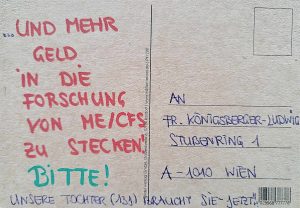 ...UND MEHR
GELD
IN DIE
FORSCHUNG
VON ME/CFS
ZU STECKEN.
BITTE!
UNSERE TOCHTER BRAUCHT SIE JETZT!
AN
FR. KÖNIGSBERGER-LUDWIG
STUBENRING 1
A-1010 WIEN